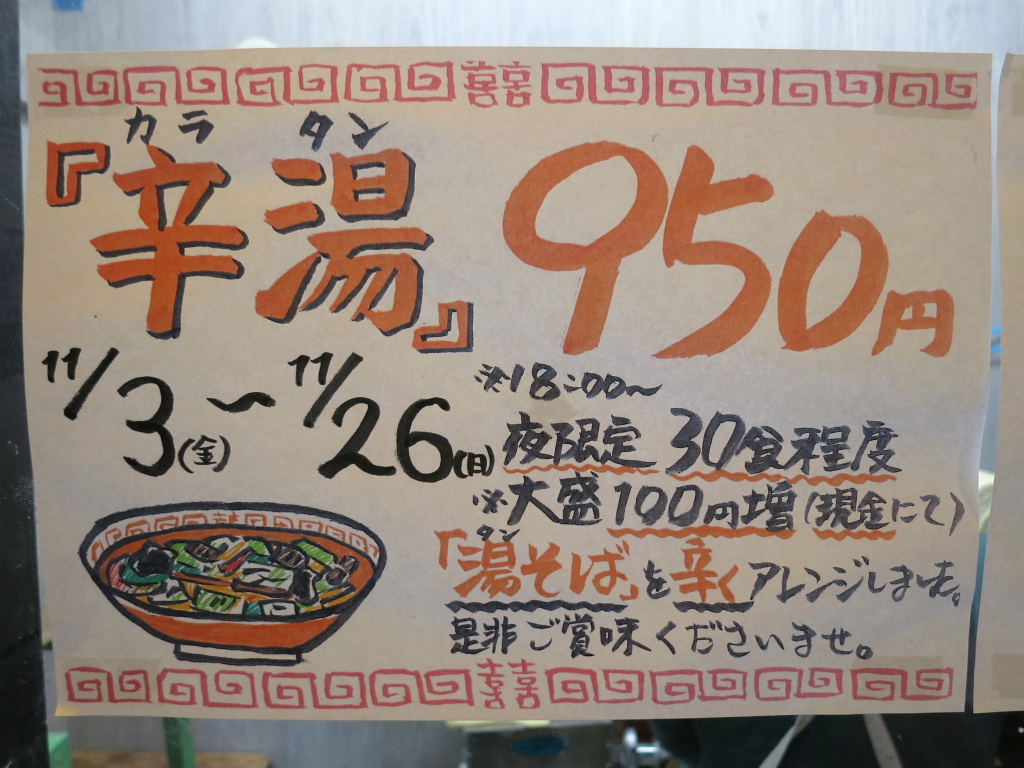 囍
カラ タン
『辛湯』 950円
11/3(金)〜11/26(日)
※18:00〜
夜限定 30食程度
※大盛100円増(現金にて)
タン
「湯そば」を辛くアレンジしました。
是非ご賞味くださいませ。
囍